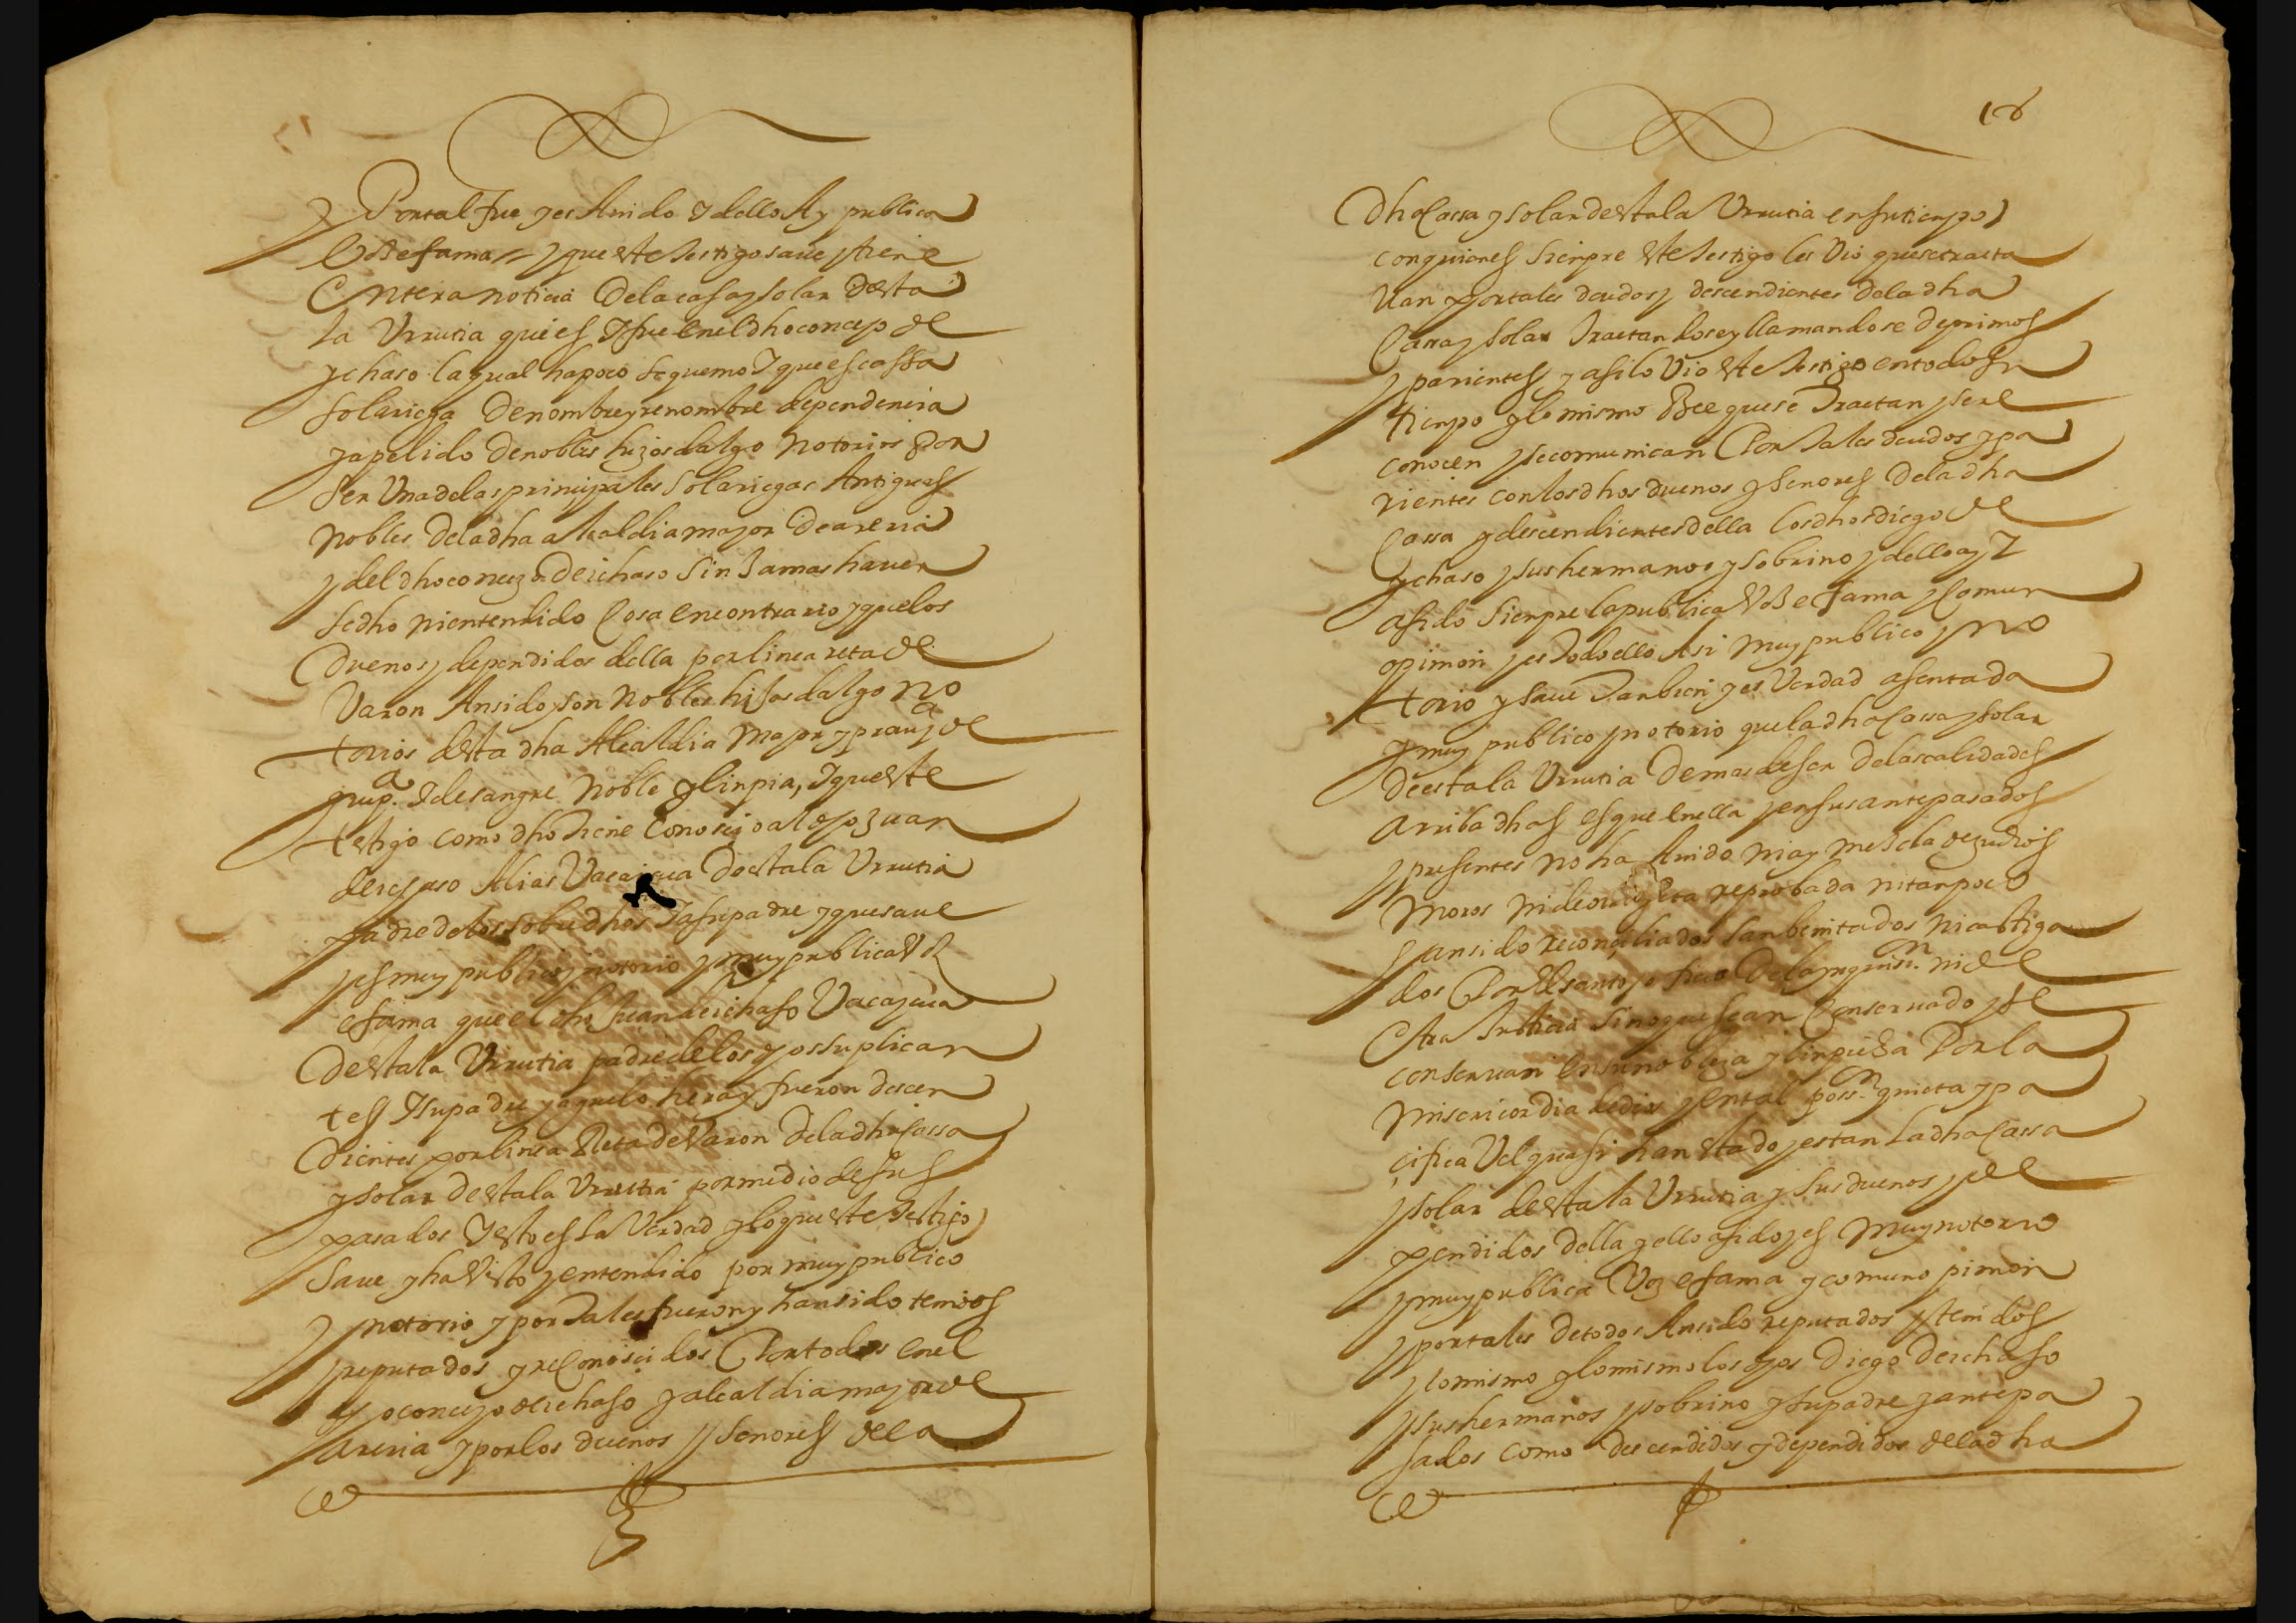 y Por tal fue y es avido y dello ay publica
boz e fama = y que este testigo save y tiene
entera noticia de la casa y solar desta
la Urrutia que es y fue en el dho concejo de
ychaso la qual ha poco se quemo y que es cassa
solariega de nombre y renombre dependencia
y apelido de nobles hijosdalgo notorios por
ser Una de las principales solariegas Antiguas
nobles de la dha alcaldia mayor de areria
y del dho concejo de ichaso sin Jamas haver
se dho ni entendido cosa en contrario y que los
duenos y dependidos della por linea reta de
Varon An sido y son nobles hijosdalgo no
torios desta dha Alcaldia mayor y provª de
guipª. y de sangre noble y linpia, y que este
testigo como dho tiene conoscio al dho Juan
de ichaso Alias Vacaycua destala Urrutia
padre de los sobredhos y a su padre y que save
y es muy publico y notorio y muy publica voz
e fama que el dho Juan de ichaso Vacaycua
destala Urrutia padre de los dhos suplican
tes y su padre y aguelo hera y fueron descen
dientes por linea Reta de Varon de la dha cassa
y solar destala Urrutia por medio de sus
pasados y esto es la Verdad y lo que este testigo
save y ha visto y entendido por muy publico
y notorio y por tales fueron y han sido tenidos
y reputados y reconoscidos Por todos en el
dho concejo de ichaso y alcaldia mayor de
areria y por los duenos y senores de la
16
dha cassa y solar destala Urrutia en su tienpo
con quienes sienpre este testigo les vio que se tracta
van por tales deudos y descendientes de la dha
cassa y solar tractandose y llamandose de primos
y parientes y asi lo vio este testigo en todo su
tienpo y lo mismo vee que se tractan y se re
conocen y se comunican Por tales deudos y pa
rientes con los dhos duenos y senores de la dha
cassa y descendientes della los dhos diego de
ychaso y sus hermanos y sobrino y dello ay y
a sido sienpre la publica voz e fama y comun
opinion y es todo ello Asi muy publico y no
torio y save tanbien y es Verdad asentada
y muy publico y notorio que la dha cassa y solar
deestala Urrutia demas de ser de las calidades
arriba dhas es que en ella y en sus antepasados
y presentes no ha avido ni ay mescla de judios
moros ni de otra secta reprobada ni tanpoco
han sido reconciliados sanbenitados ni castiga
dos Por El santo oficio de la ynquisiⁿ. ni de
otra Justicia sino que se an conservado y se
conservan en su nobleza y linpieza Por la
misericordia de dios y en tal possⁿ. quieta y pa
çifica Vel quasi han estado y estan la dha cassa
y solar destala Urrutia y sus duenos y de
pendidos della y ello a sido y es muy notorio
y muy publica Voz e fama y comun opinion
y por tales de todos An sido reputados y tenidos
y lo mismo y lo mismo los dhos Diego de ichaso
y sus hermanos y sobrino y su padre y antepa
sados como descendidos y dependidos de la dha